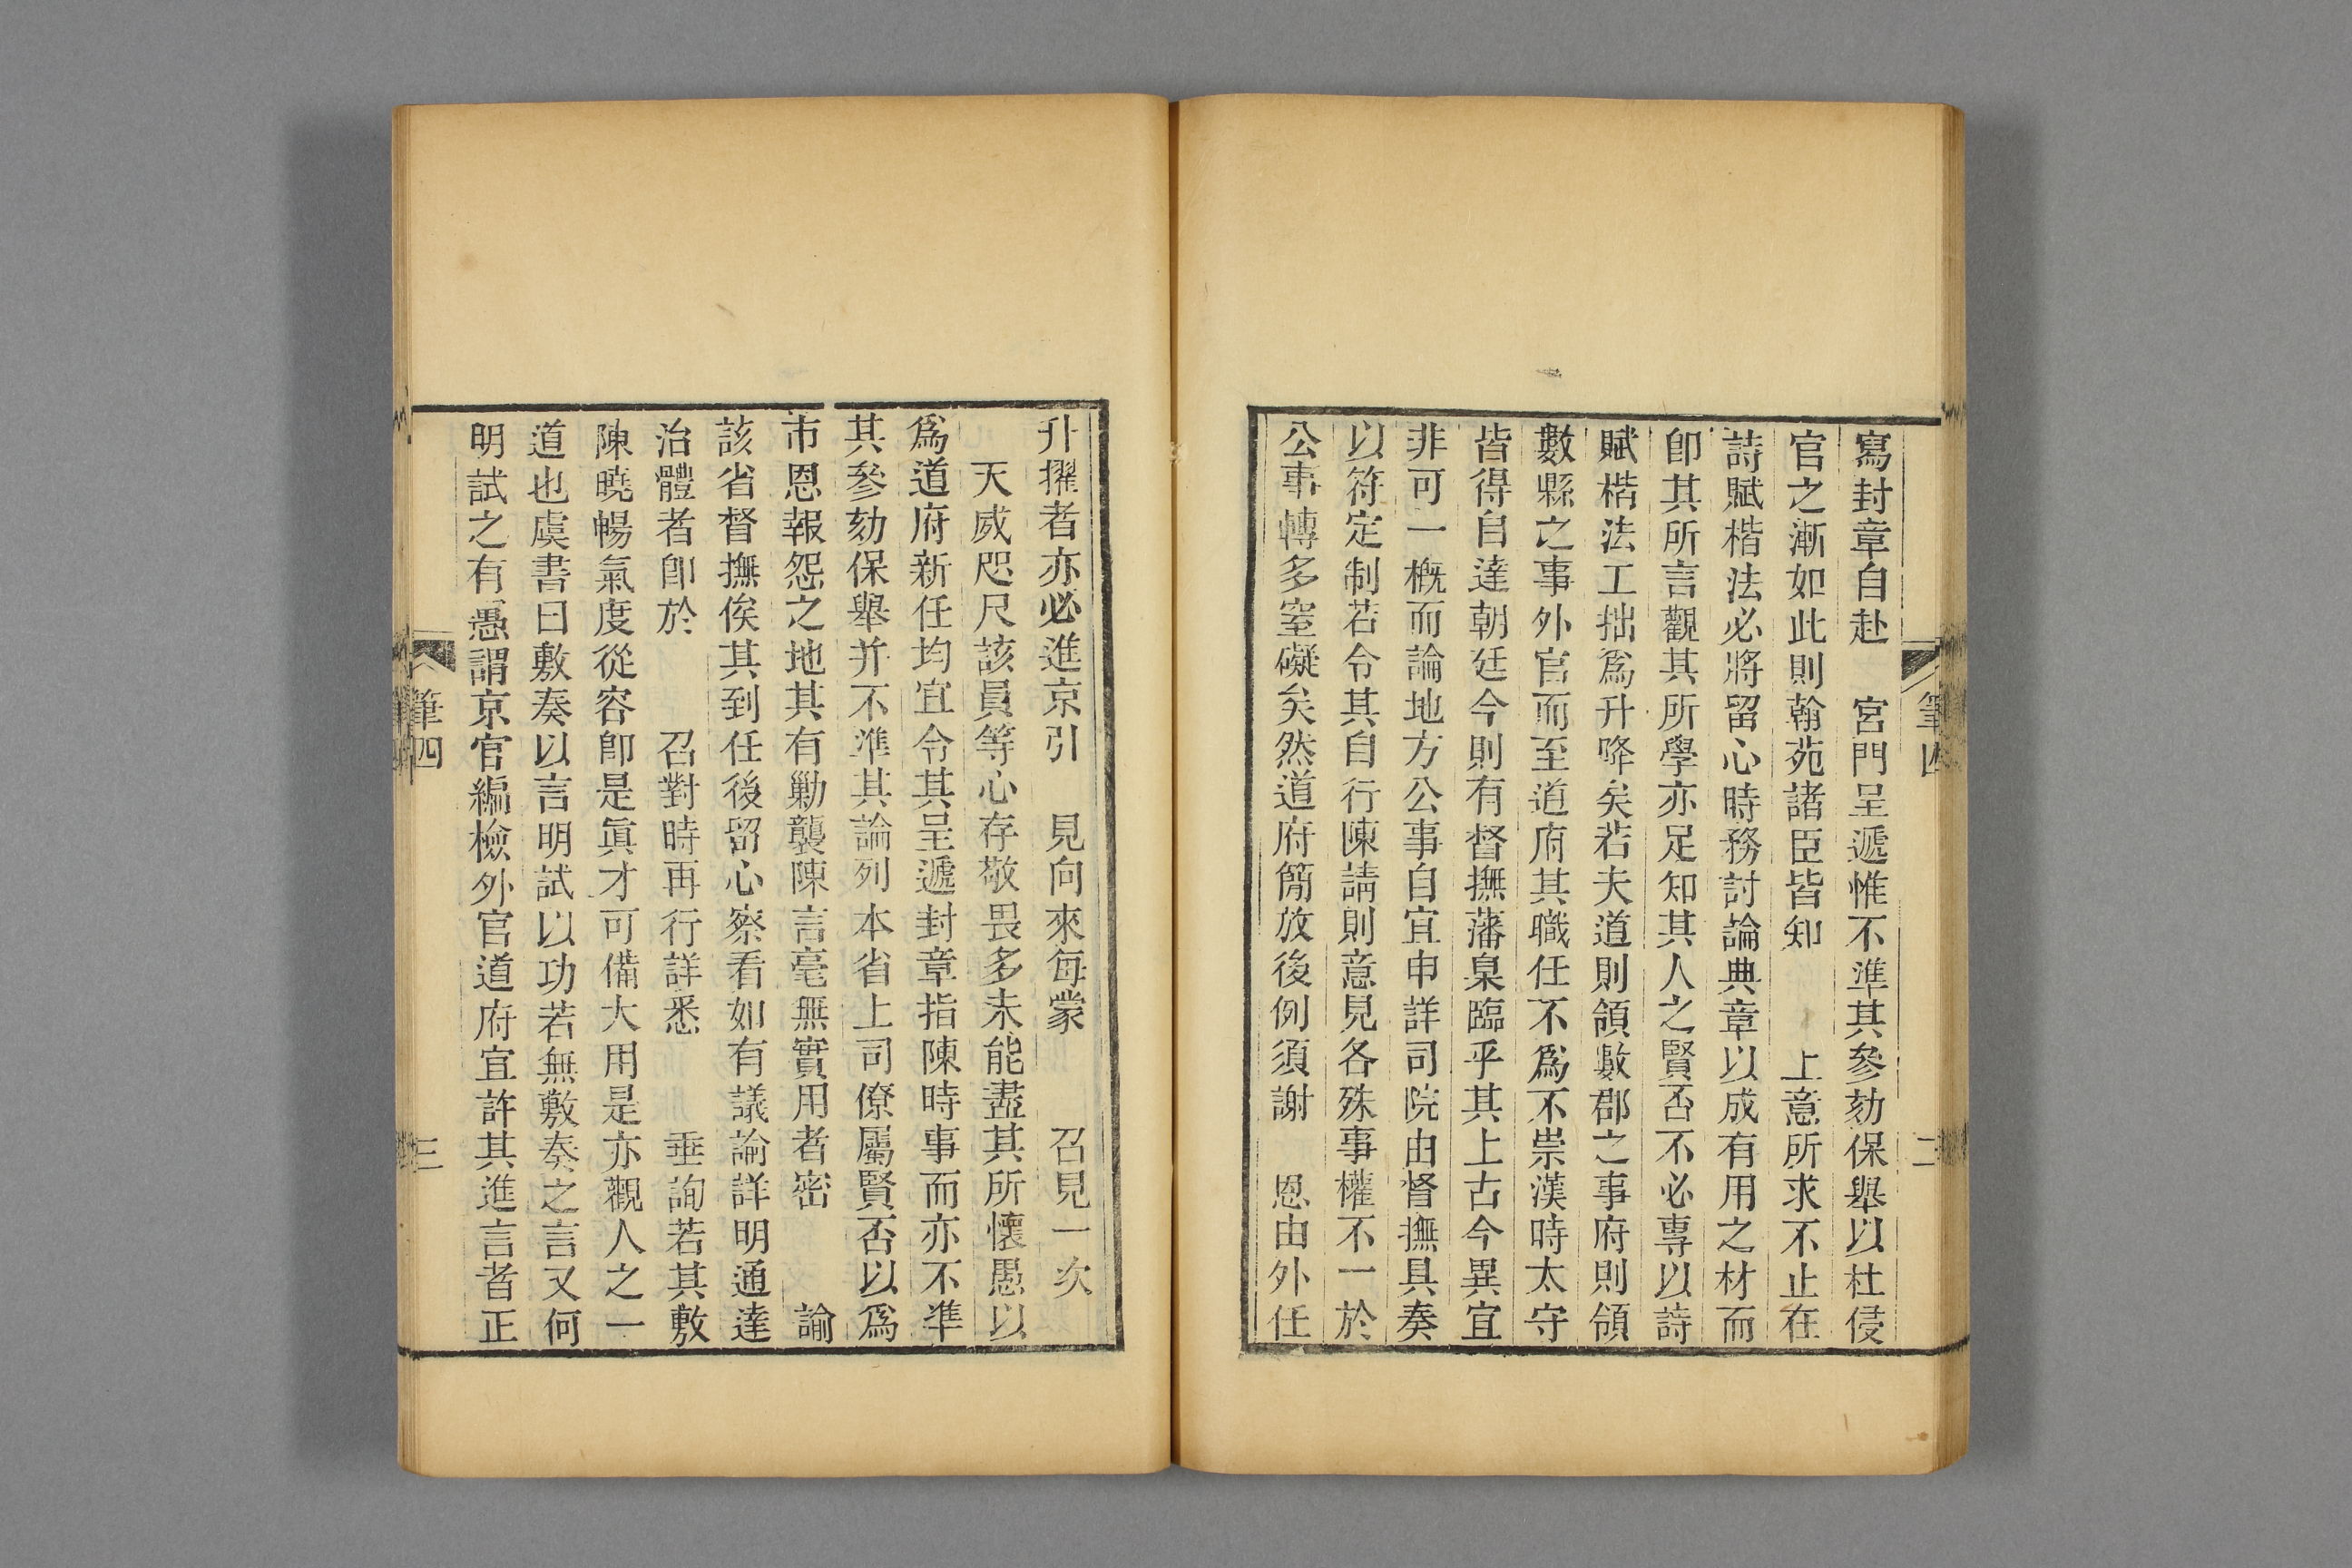 寫封章自赴　宮門呈遞惟不準其參劾保舉以杜侵
官之漸如此則翰苑諸臣皆知　上意所求不止在
詩賦楷法必將留心時務討論典章以成有用之材而
卽其所言觀其所學亦足知其人之賢否不必專以詩
賦楷法工拙爲升降矣若夫道則領數郡之事府則領
數縣之事外官而至道府其職任不爲不崇漢時太守
皆得自達朝廷今則有督撫藩臬臨乎其上古今異宜
非可一槪而論地方公事自宜申詳司院由督撫具奏
以符定制若令其自行陳請則意見各殊事權不一於
公事轉多窒礙矣然道府簡放後例須謝　恩由外任
筆四
二
升擢者亦必進京引　見向來每蒙　召見一次
天威咫尺該員等心存敬畏多未能盡其所懷愚以
爲道府新任均宜令其呈遞封章指陳時事而亦不準
其參劾保舉并不準其論列本省上司僚屬賢否以爲
市恩報怨之地其有勦襲陳言毫無實用者密　諭
該省督撫俟其到任後留心察看如有議論詳明通達
治體者卽於　召對時再行詳悉　垂詢若其敷
陳曉暢氣度從容卽是眞才可備大用是亦觀人之一
道也虞書曰敷奏以言明試以功若無敷奏之言又何
明試之有愚謂京官編檢外官道府宜許其進言者正
筆四
三